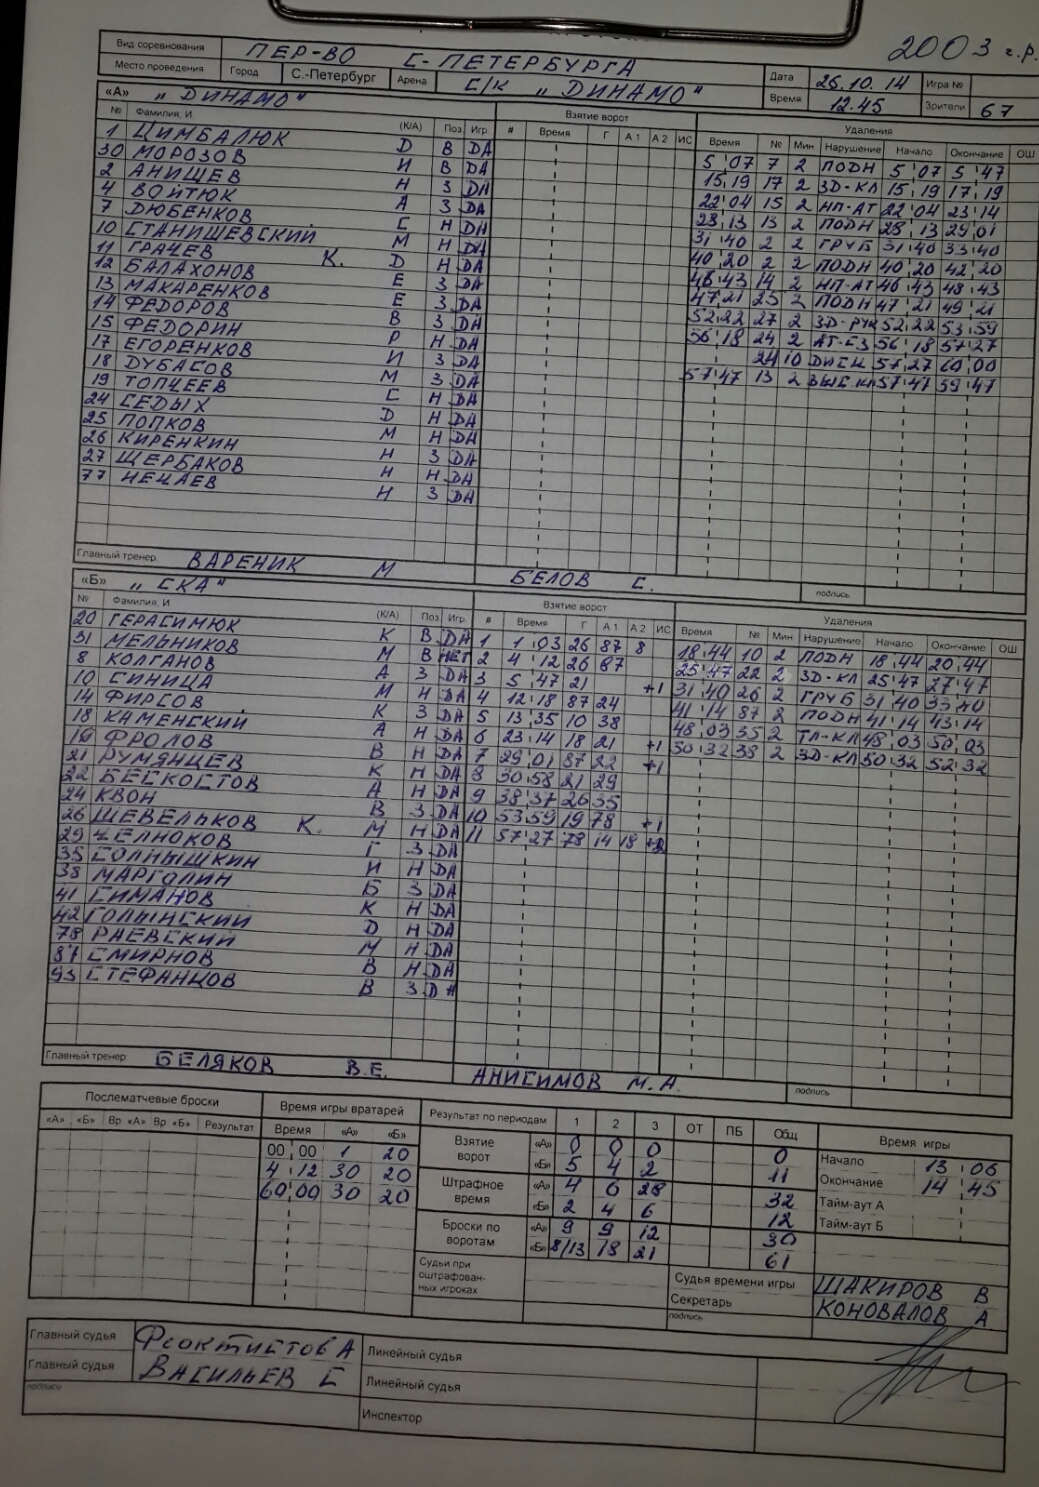 2003 г.р.
Вид соревнования ПЕР-ВО С-ПЕТЕРБУРГА
Место проведения Город С.-Петербург Арена С/К „ДИНАМО"
Дата 26.10.14 Игра №
Время 12.45 Зрители 67
«А» „ДИНАМО" Взятие ворот Удаления
№ Фамилия, И (К/А) Поз Игр. # Время Г А1 А2 ИС Время № Мин Нарушение Начало Окончание ОШ
1 ЦИМБАЛЮК D В DА 5 07 7 2 ПОДН 5 07 5 47
30 МОРОЗОВ И В DА 15 19 17 2 ЗD-КЛ 15 19 17 19
2 АНИЩЕВ Н З DА 22 04 15 2 НП-АТ 22 04 23 14
4 ВОЙТЮК А З DА 28 13 13 2 ПОDН 28 13 29 01
7 DЮБЕНКОВ С Н DА 31 40 2 2 ГРУБ 31 40 33 40
10 СТАНИШЕВСКИЙ М Н DА 40 20 2 2 ПОDН 40 20 42 20
11 ГРАЧЕВ К. D Н DА 46 43 14 2 НП-АТ 46 43 48 43
12 БАЛАХОНОВ Е З DА 47 21 25 2 ПОDН 47 21 49 21
13 МАКАРЕНКОВ Е З DА 52 22 27 2 ЗD-РУК 52 22 53 59
14 ФЕДОРОВ В З DА 56 18 24 2 56 18 57 27
15 ФЕДОРИН Р Н DА 24 10 57 27 60 00
17 ЕГОРЕНКОВ И З DА 57 47 13 2 57 47 59 47
18 DУБАСОВ М З DА
19 ТОПЧЕЕВ С Н DА
24 СЕDЫХ D Н DА
25 ПОПКОВ М Н DА
26 КИРЕНКИН Н З DА
27 ЩЕРБАКОВ Н Н DА
77 НЕЧАЕВ Н З DА
Главный тренер ВАРЕНИК М БЕЛОВ С. подпись
«Б» „СКА" Взятие ворот Удаления
№ Фамилия, И (К/А) Поз Игр. # Время Г А1 А2 ИС Время № Мин Нарушение Начало Окончание ОШ
20 ГЕРАСИМЮК К В DА 1 1 03 26 87 8 18 44 10 2 ПОDН 18 44 20 44
31 МЕЛЬНИКОВ М В НЕТ 2 4 12 26 87 25 47 22 2 ЗD-КЛ 25 47 27 47
8 КОЛГАНОВ А З DА 3 5 47 21 +1 31 40 26 2 ГРУБ 31 40 33 40
10 СИНИЦА М Н DА 4 12 18 87 24 41 14 87 2 ПОDН 41 14 43 14
14 ФИРСОВ К З DА 5 13 35 10 38 48 03 35 2 48 03 50 03
18 КАМЕНСКИЙ А Н DА 6 23 14 18 21 +1 50 32 38 2 ЗD-КЛ 50 32 52 32
19 ФРОЛОВ В Н DА 7 29 01 87 22 +1
21 РУМЯНЦЕВ К Н DА 8 30 58 21 29
22 БЕСКОСТОВ А Н DА 9 38 37 26 35
24 КВОН В З DА 10 53 59 19 78 +1
26 ШЕВЕЛЬКОВ К. М Н DА 11 57 27 78 14 18
29 ЧЕЛНОКОВ Г З DА
35 СОЛНЫШКИН И Н DА
38 МАРГОЛИН Б З DА
41 СИМАНОВ К Н DА
42 ГОЛЫНСКИЙ D Н DА
78 РАЕВСКИЙ М Н DА
87 СМИРНОВ В Н DА
93 СТЕФАНЦОВ В З DА
Главный тренер БЕЛЯКОВ В.Е. АНИСИМОВ М.А. подпись
Послематчевые броски Время игры вратарей Результат по периодам 1 2 3 ОТ ПБ Общ Время игры
«А» «Б» Вр «А» Вр «Б» Результат Время «А» «Б»
00 00 1 20
4 12 30 20
60 00 30 20
Взятие ворот «А» 0 0 0 0
«Б» 5 4 2 11
Штрафное время «А» 4 6 28 32
«Б» 2 4 6 12
Броски по воротам «А» 9 9 12 30
«Б» 8/13 18 21 61
Начало 13 06
Окончание 14 45
Тайм-аут А
Тайм-аут Б
Судьи при оштрафованных игроках
Судья времени игры ШАКИРОВ В
Секретарь КОНОВАЛОВ А
подпись
Главный судья Феоктистов А Линейный судья
Главный судья Васильев С Линейный судья
подписи Инспектор